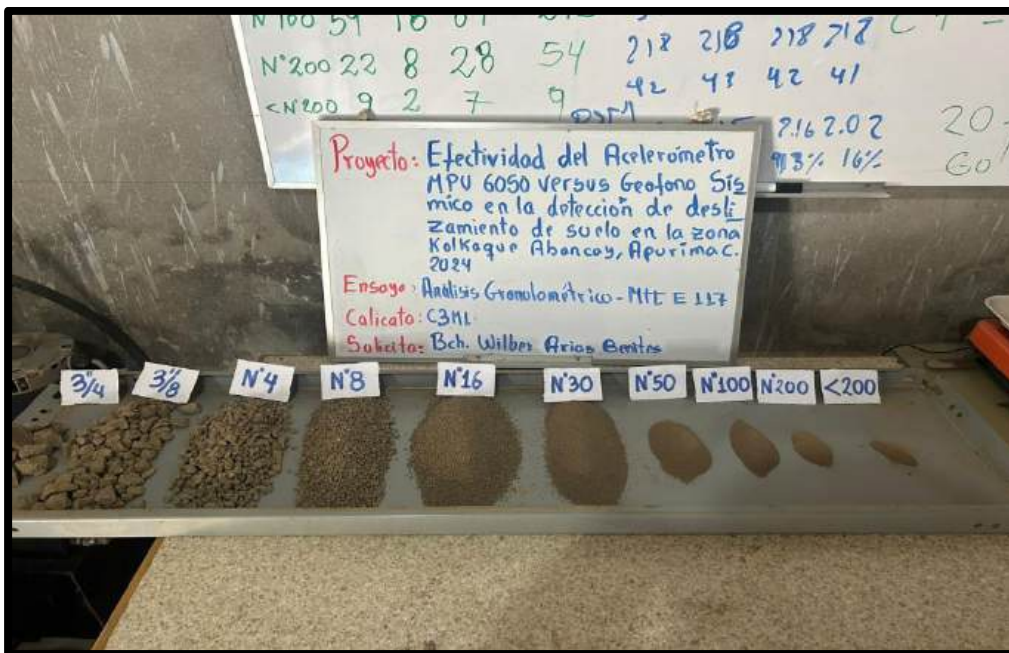 N°100 59 18
N°200 22 8 28 54
<N°200 9 2 7 9
218 218 218 218
42 43 42 41
2.16 2.02
13% 16%
20
60
Proyecto: Efectividad del Acelerometro
MPU 6050 versus Geofono Sís
mico en la detección de desli
zamiento de suelo en la zona
Kolkaque Abancay, Apurimac.
2024
Ensayo: Análisis Granulométrico - MTC E 117
Calicata: C3M1
Solicita: Bch. Wilber Arias Benites
3/4"
3/8"
N°4
N°8
N°16
N°30
N°50
N°100
N°200
<200